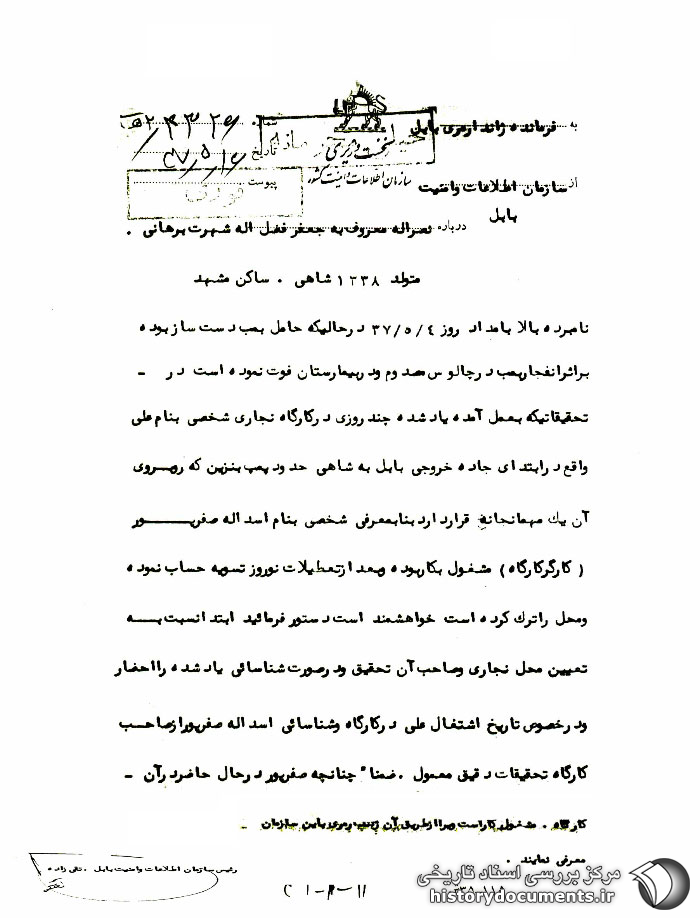 به فرمانده ژاندارمری بابل
شماره ۲۳۳۲۶/ه
نخست وزیری
تاریخ ۳۷/۵/۱۶
سازمان اطلاعات و امنیت کشور
از سازمان اطلاعات وامنیت بابل
پیوست
فوری
درباره نصراله معروف به جعفر فضل اله شهرت برهانی .
متولد ۱۳۳۸ شاهی . ساکن مشهد
نامبرده بالا بامداد روز ۳۷/۵/۴ درحالیکه حامل بمب دست ساز بوده
براثرانفجاربمب درچالوس مصدوم ودربیمارستان فوت نموده است در -
تحقیقاتیکه بعمل آمده یادشده چند روزی درکارگاه نجاری شخصی بنام علی
واقع درابتدای جاده خروجی بابل به شاهی حدود پمپ بنزین که روبروی
آن یك مهمانخانه قراردارد بنابمعرفی شخصی بنام اسداله صفرپور
(کارگرکارگاه) مشغول بکاربوده وبعد ازتعطیلات نوروز تسویه حساب نموده
ومحل راترك کرده است خواهشمند است دستور فرمائید ابتدا نسبت به
تعیین محل نجاری وصاحب آن تحقیق ودرصورت شناسائی یادشده رااحضار
ودرخصوص تاریخ اشتغال علی درکارگاه وشناسائی اسداله صفرپورازصاحب
کارگاه تحقیقات دقیق معمول .ضمنا" چنانچه صفرپور درحال حاضردرآن -
کارگاه . مشغول کاراست ویراازطریق آن ژاندارمری باین سازمان -
معرفی نمایند .
رئیس سازمان اطلاعات وامنیت بابل . تقی زاده
مرکز بررسی اسناد تاریخی
historydocuments.ir